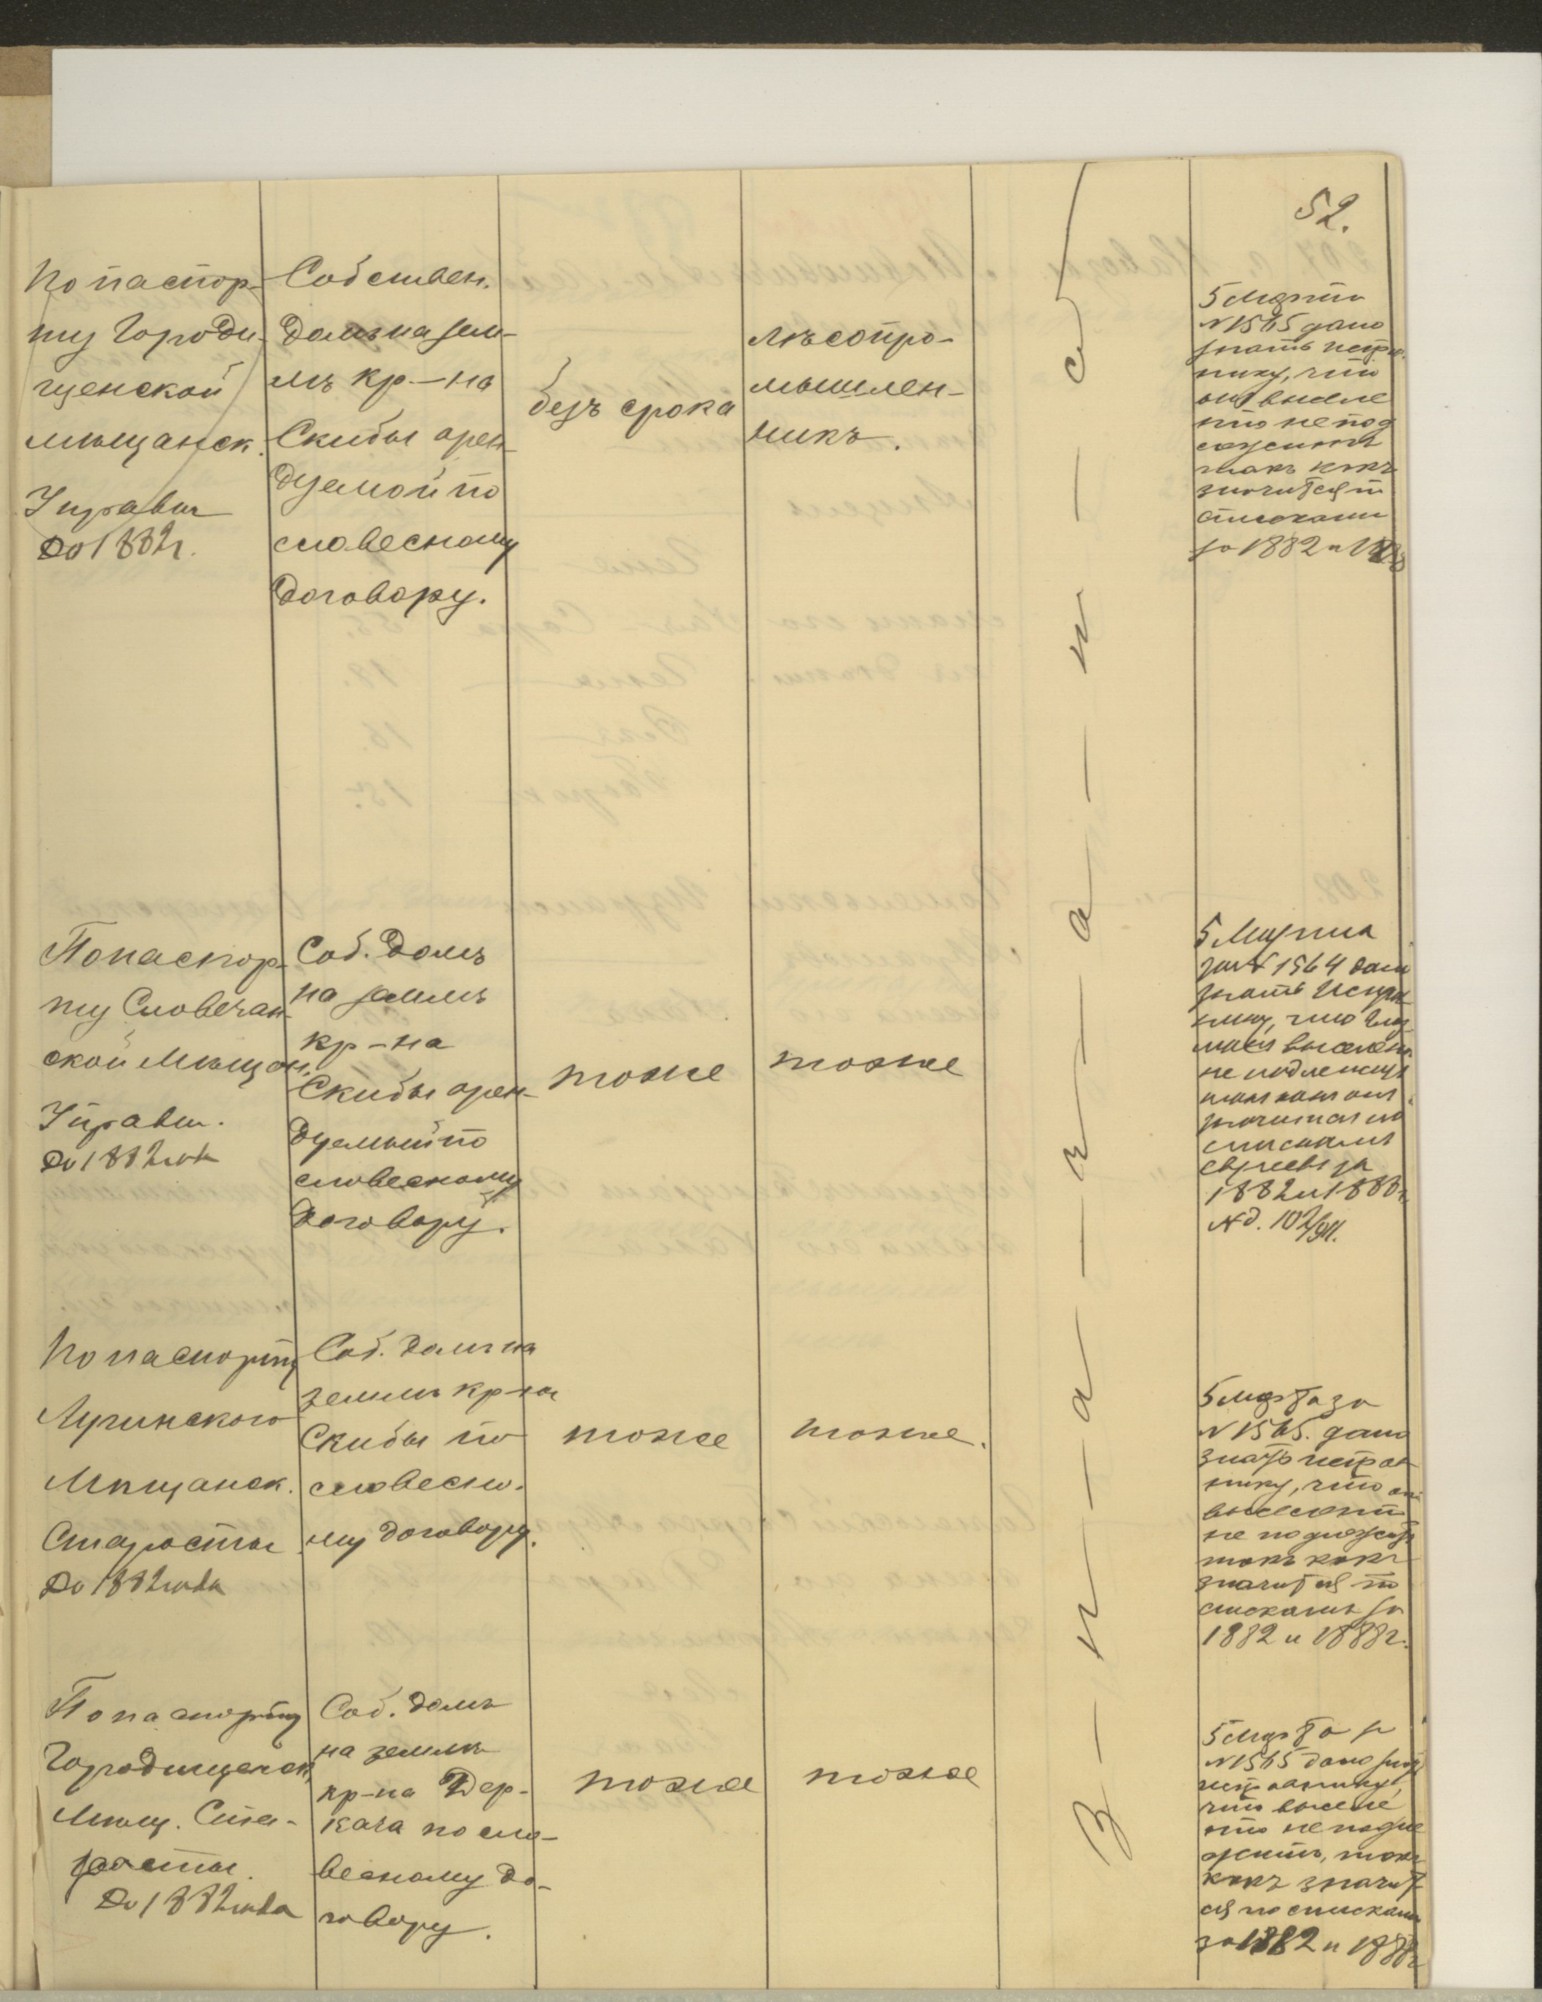 52.
По паспор-
ту Городи-
щенской
мѣщанск.
Управы
До 1882 г.
Собствен.
домъ на зем-
лѣ кр-на
Скибы арен-
дуемой по
словесному
договору.
безъ срока
лѣсопро-
мышлен-
никъ.
5 Марта
№ 1565 дано
знать исправ.
нику, что
они выселе
нію не под
лежитъ
такъ какъ
значится по
спискамъ
за 1882 и 1888
По паспор-
ту Словечан
ской Мѣщан.
Управы.
До 1882 года
Соб. домъ
на землѣ
кр-на
Скибы арен-
дуемый по
словесному
договору.
тоже
тоже
5 Марта
за № 1564 дано
знать Исправ
нику, что
выселен.
не подлежитъ
такъ какъ онъ
значится по
спискамъ
евреевъ за
1882 и 1888 г.
№ д. 102/911.
По паспорту
Лугинского
Мѣщанск.
Старосты
До 1882 года
Соб. домъ на
землѣ кр-на
Скибы по
словесно-
му договору.
тоже
тоже.
5 Марта за
№ 1565. дано
знать исправ
нику, что он
выселенію
не подлежит
такъ какъ
значится по
спискамъ за
1882 и 1888 г.
По паспорту
Городищенск
Мѣщ. Ста-
росты.
До 1882 года
Соб. домъ
на землѣ
кр-на Дер-
кача по сло-
весному до-
говору.
тоже
тоже
5 Марта за
№ 1565 дано знать
исправнику,
что выселе
нію не подле
житъ, такъ
какъ значит
ся по спискамъ
за 1882 и 1888 г
З-н-а-з-а-н-и-с